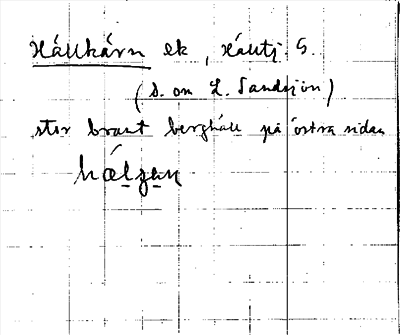 Hällkärn ek, Hälltj. S.
(S. om L. Sandsjön)
stor brant berghäll på östra sidan
hǽlʒen